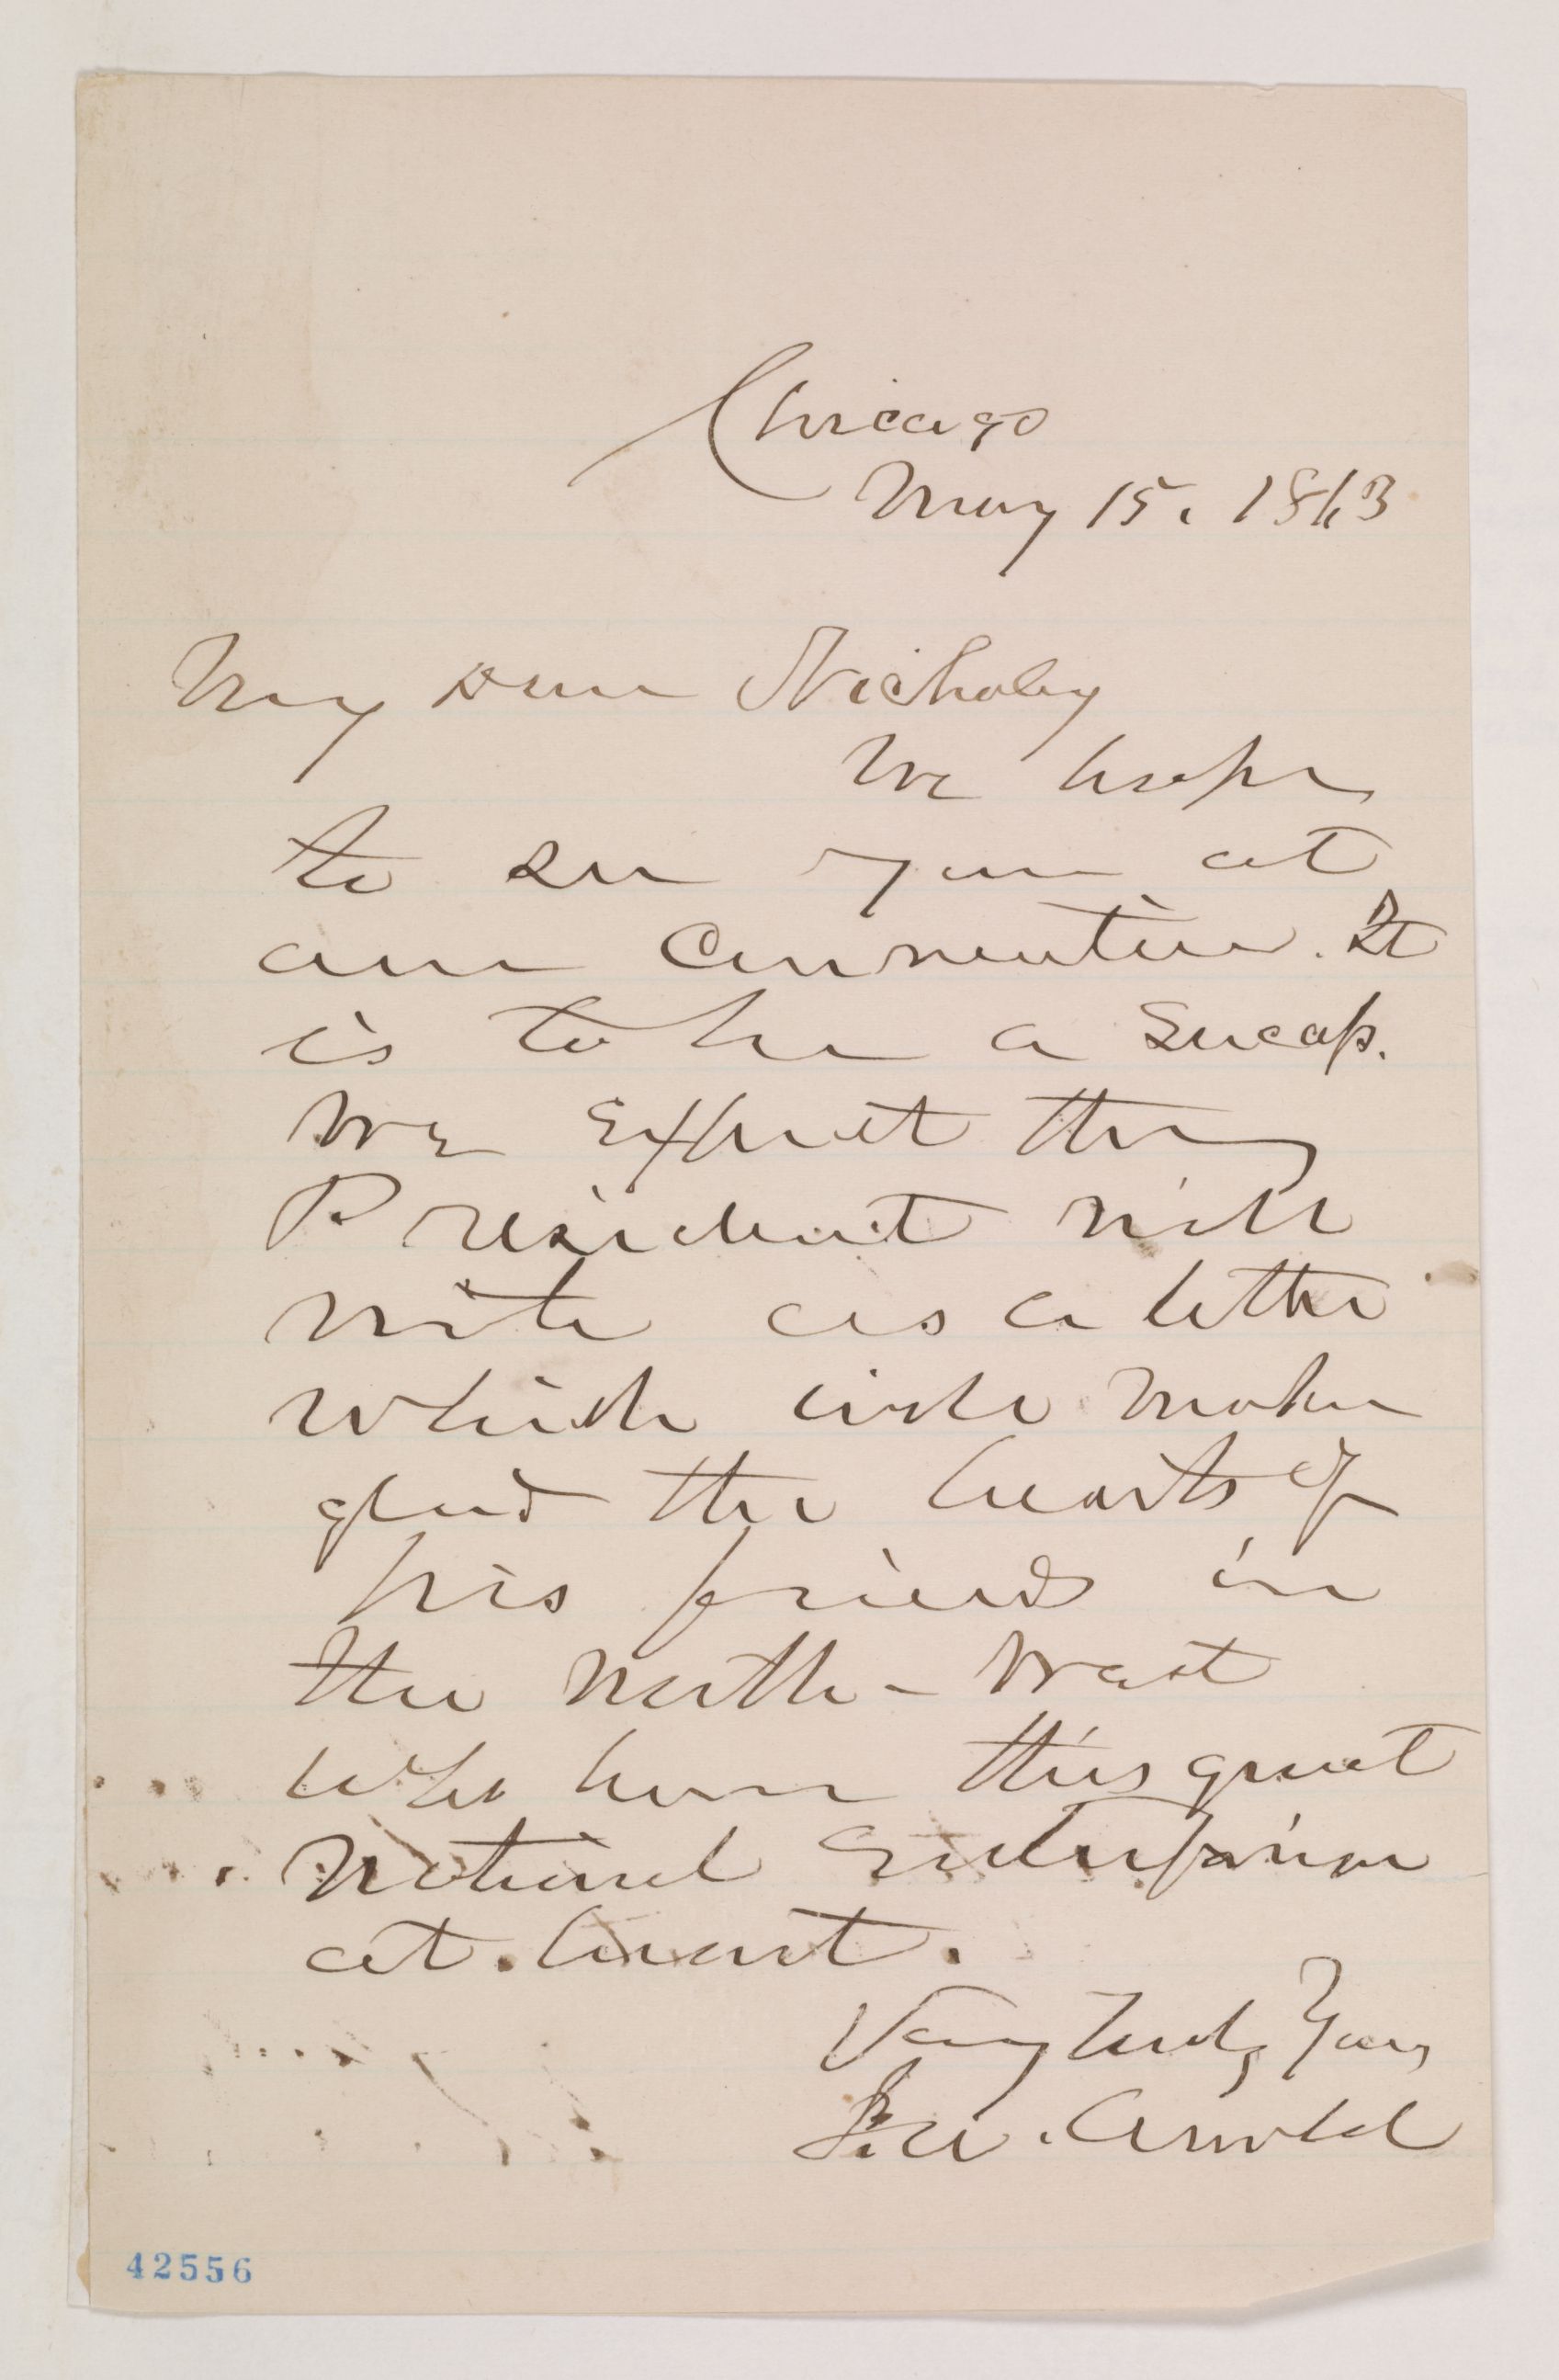 Chicago
May 15. 1863
My Dear Nicholay
We hope
to see you at
our Convention. It
is to be a success.
We expect the
President will
write us a letter
which will make
glad the hearts of
his friends in
the North-West
who have this great
National Enterprise
at heart.
Very truly Yours
I. N. Arnold
42556